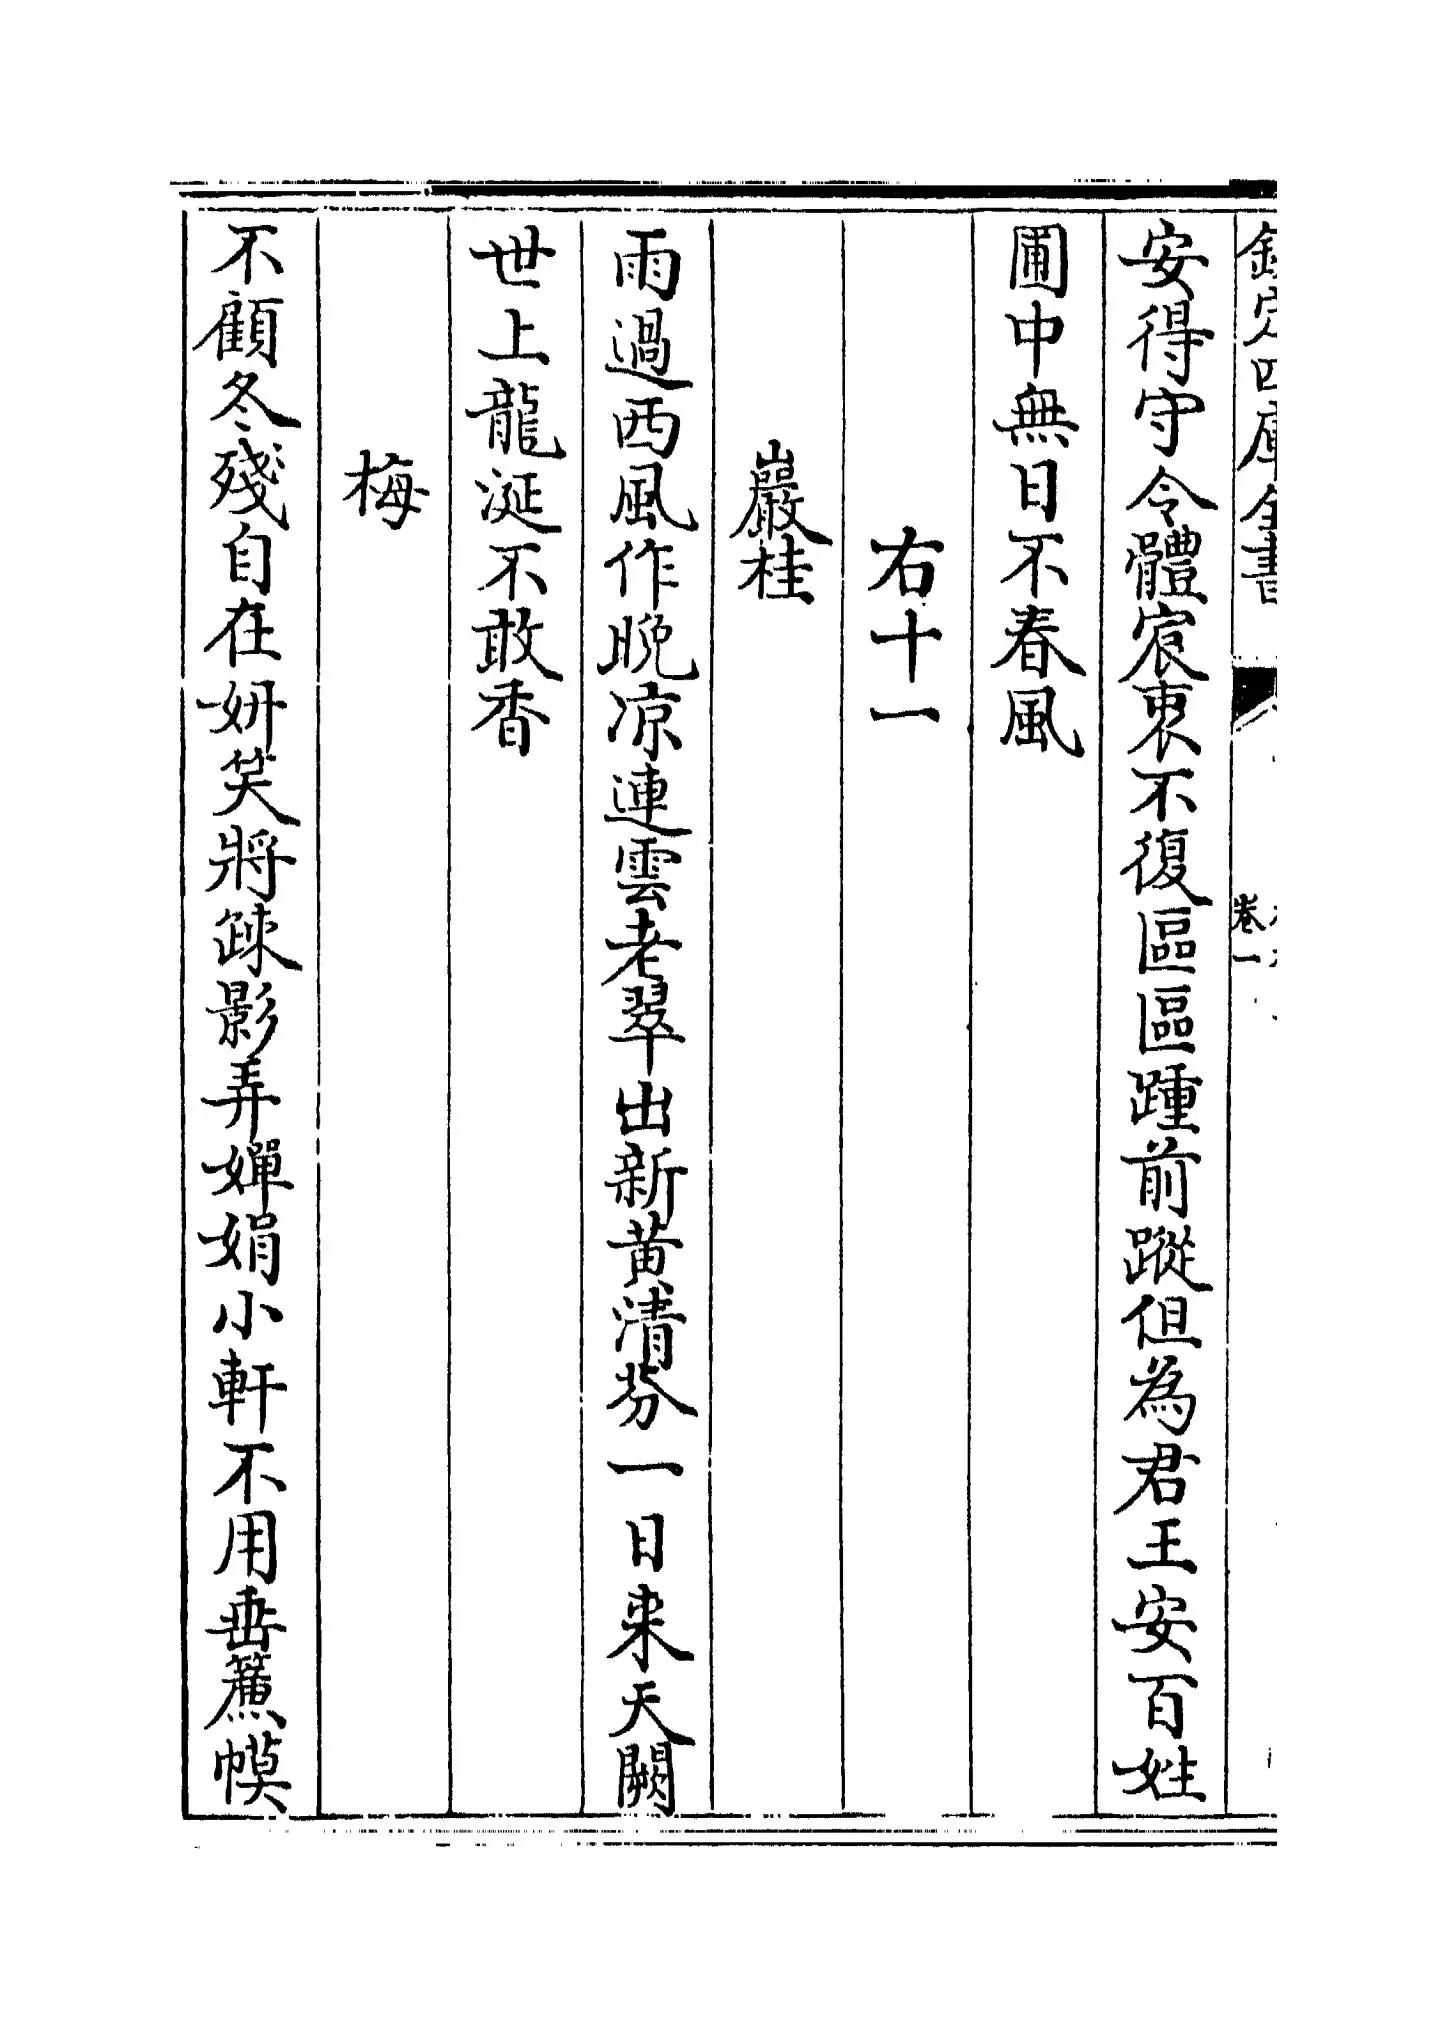 欽定四庫全書
卷一
安得守令體宸衷不復區區踵前蹤但為君王安百姓
圃中無日不春風
右十一
巖桂
雨過西風作晚凉連雲老翠出新黄清芬一日来天闕
世上龍涎不敢香
梅
不顧冬殘自在妍笑將疎影弄嬋娟小軒不用垂簾幙